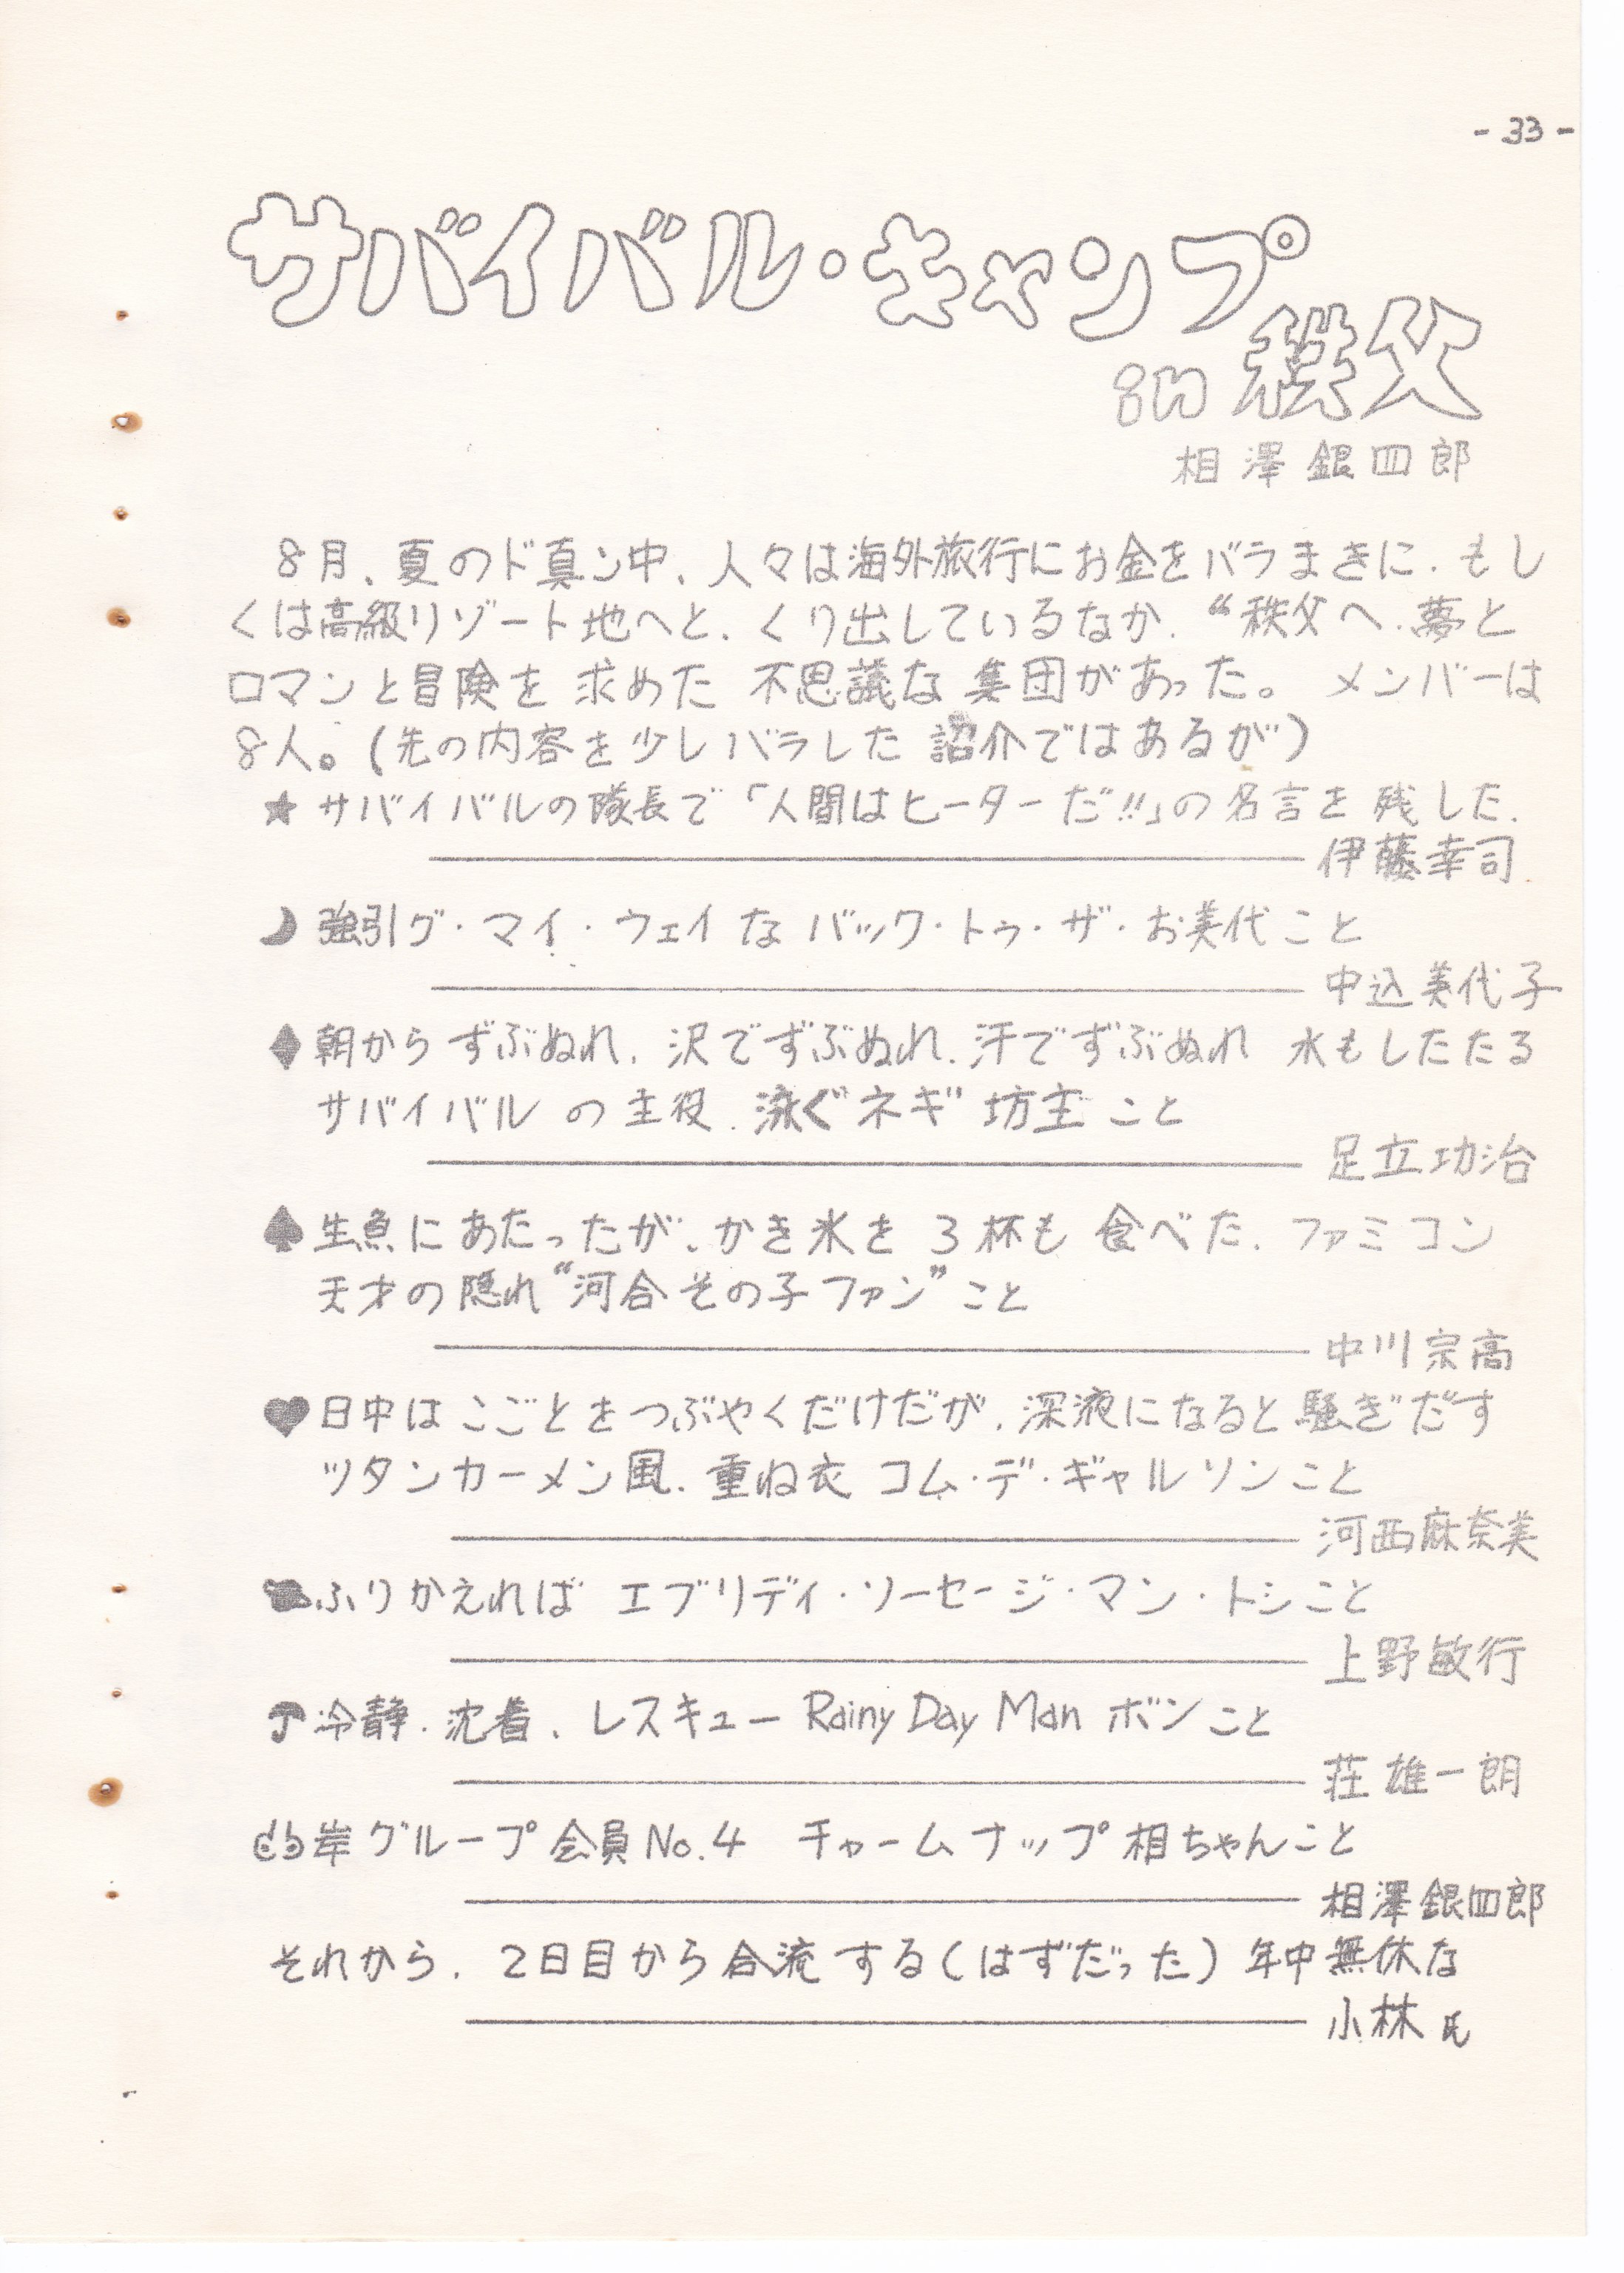 - 33 -
サバイバル・キャンプ
in 秩父
相澤銀四郎
8月、夏のド真ン中、人々は海外旅行にお金をバラまきに、もし
くは高級リゾート地へと、くり出しているなか、“秩父へ、夢と
ロマンと冒険を求めた不思議な集団があった。メンバーは
8人。(先の内容を少しバラした紹介ではあるが)
★サバイバルの隊長で「人間はヒーターだ!!」の名言を残した、
伊藤幸司
☽強引グ・マイ・ウェイなバック・トゥ・ザ・お美代こと
中込美代子
♦朝からずぶぬれ、沢でずぶぬれ、汗でずぶぬれ 水もしたたる
サバイバルの主役、泳ぐネギ坊主こと
足立功治
♠生魚にあたったが、かき氷を3杯も食べた、ファミコン
天才の隠れ“河合その子ファン”こと
中川宗高
♥日中はこごとをつぶやくだけだが、深夜になると騒ぎだす
ツタンカーメン風、重ね衣 コム・デ・ギャルソンこと
河西麻奈美
ふりかえれば エブリディ・ソーセージ・マン・トシこと
上野敏行
☂冷静、沈着、レスキュー Rainy Day Man ボンこと
荘雄一朗
岸グループ会員No.4 チャームナップ相ちゃんこと
相澤銀四郎
それから、2日目から合流する(はずだった)年中無休な
小林氏